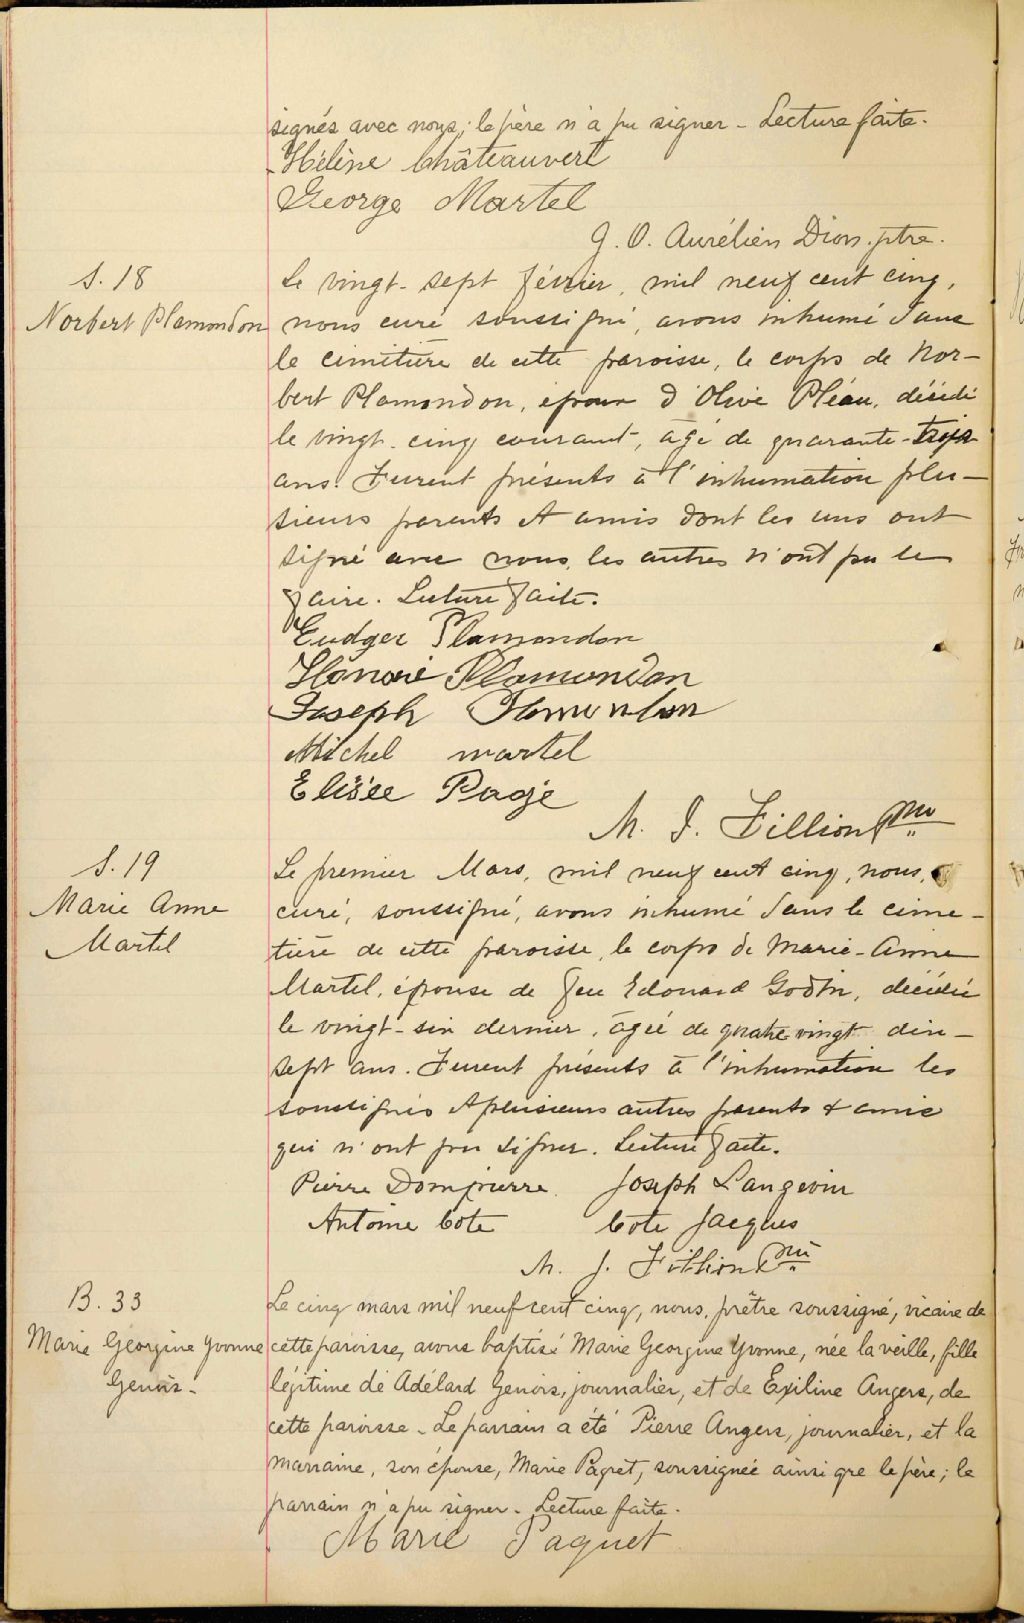 signés avec nous; le père n'a pu signer - Lecture faite.
Hélène Châteauvert
George Martel
J. O. Aurélien Dion. ptre.
S. 18
Norbert Plamondon
Le vingt-sept février, mil neuf cent cinq,
nous curé soussigné, avons inhumé dans
le cimetière de cette paroisse, le corps de Nor-
bert Plamondon, époux d'Olive Pléau, décédé
le vingt-cinq courant, âgé de quarante-trois
ans. Furent présents à l'inhumation plu-
sieurs parents et amis dont les uns ont
signé avec nous, les autres n'ont pu le
faire. Lecture faite.
Eudger Plamondon
Honoré Plamondon
Joseph Plamondon
Michel martel
Elisée Pagé
M. J. Fillion Ptre
S. 19
Marie Anne
Martel
Le premier Mars, mil neuf cent cinq, nous,
curé, soussigné, avons inhumé dans le cime-
tière de cette paroisse, le corps de Marie-Anne
Martel, épouse de feu Edouard Godin, décédée
le vingt-six dernier, âgée de quatre vingt dix-
sept ans. Furent présents à l'inhumation les
soussignés et plusieurs autres parents & amis
qui n'ont pu signer. Lecture faite.
Pierre Dompierre Joseph Langevin
Antoine Cote Cote Jacques
M. J. Fillion Ptre
B. 33
Marie Georgine Yvonne
Genois-
Le cinq mars mil neuf cent cinq, nous, prêtre soussigné, vicaire de
cette paroisse, avons baptisé Marie Georgine Yvonne, née la veille, fille
légitime de Adélard Genois, journalier, et de Exiline Angers, de
cette paroisse - Le parrain a été Pierre Angers, journalier, et la
marraine, son épouse, Marie Paquet, soussignée ainsi que le père; le
parrain n'a pu signer - Lecture faite.
Marie Paquet